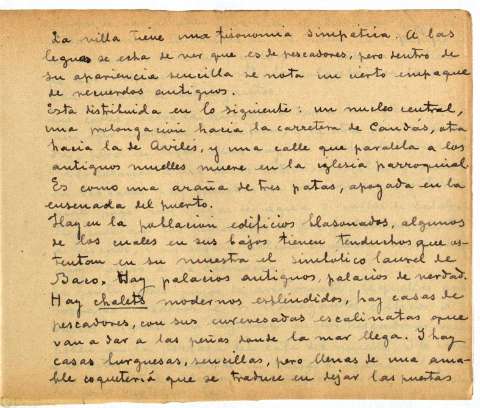 La villa tiene una fisonomia simpática. A las
leguas se echa de ver que es de pescadores, pero dentro de
su apariencia sencilla se nota un cierto empaque
de recuerdos antiguos.
Esta distribuida en lo siguiente: un nucleo central,
una prolongación hacia la carretera de Candás, otra
hacia la de Aviles, y una calle que paralela a los
antiguos muelles muere en la iglesia parroquial.
Es como una araña de tres patas, apoyada en la
ensenada del puerto.
Hay en la poblacion edificios blasonados, algunos
de los cuales en sus bajos tienen tenduchos que os-
tentan en su muestra el simbolico laurel de
Baco. Hay palacios antiguos, palacios de verdad.
Hay chalets modernos esplendidos, hay casas de
pescadores, con sus enrevesadas escalinatas que
van a dar a las peñas donde la mar llega. Y hay
casas burguesas, sencillas, pero llenas de una ama-
ble coqueteria que se traduce en dejar las puertas